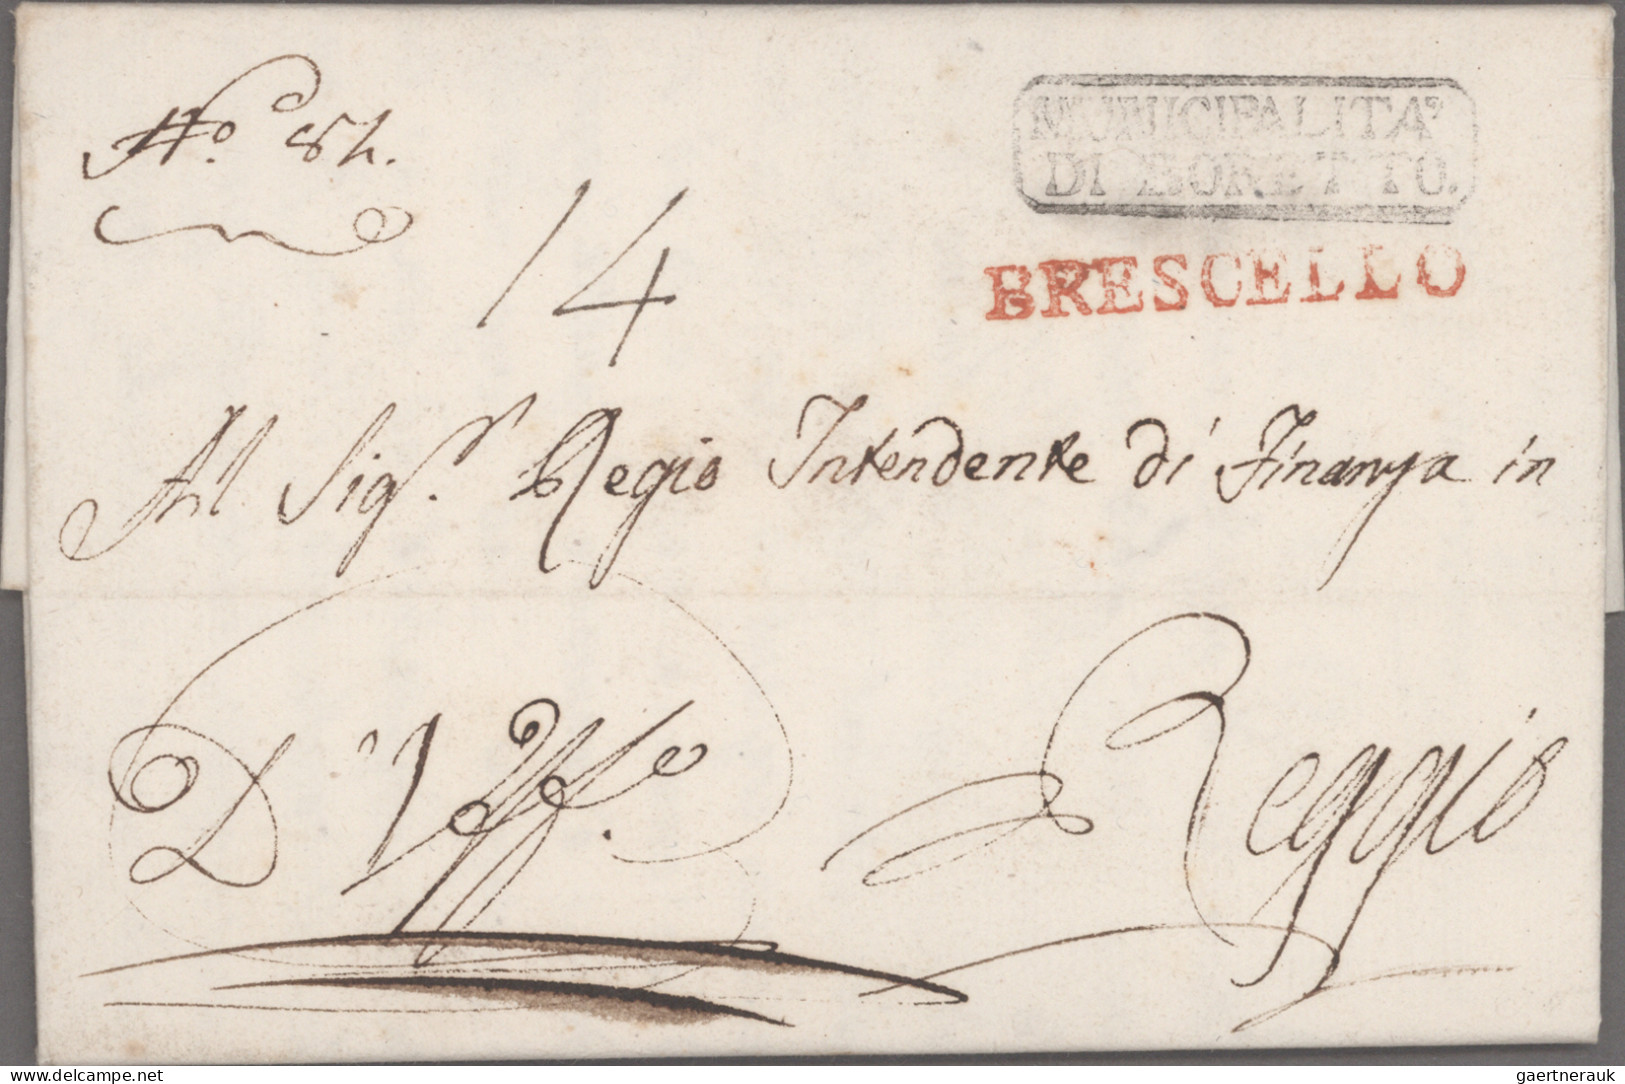 No.
MUNICIPALITA'
DI BORETTO.
14
BRESCELLO
Al Sig.r Regio Intendente di Finanza in
D'Uff.o
Reggio
delcampe.net
gaertnerauk